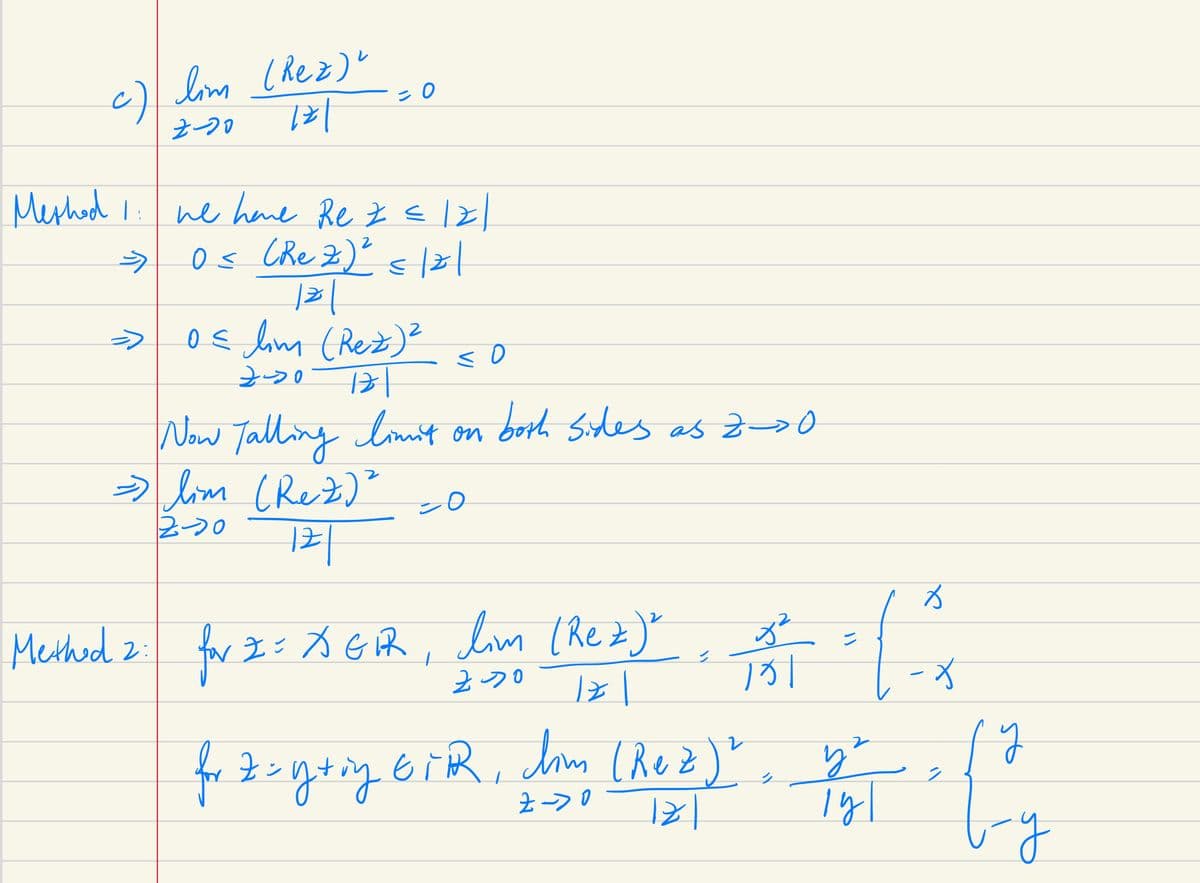 c) lim_{z→0} (Re z)² / |z| = 0
Method 1: we have Re z ≤ |z|
⇒ 0 ≤ (Re z)² / |z| ≤ |z|
⇒ 0 ≤ lim_{z→0} (Re z)² / |z| ≤ 0
Now Talling limit on both sides as z→0
⇒ lim_{z→0} (Re z)² / |z| = 0
Method 2: for z = x ∈ ℝ, lim_{z→0} (Re z)² / |z| = x² / |x| = { x
-x
for z = y + iy ∈ iℝ, lim_{z→0} (Re z)² / |z| = y² / |y| = { y
-y